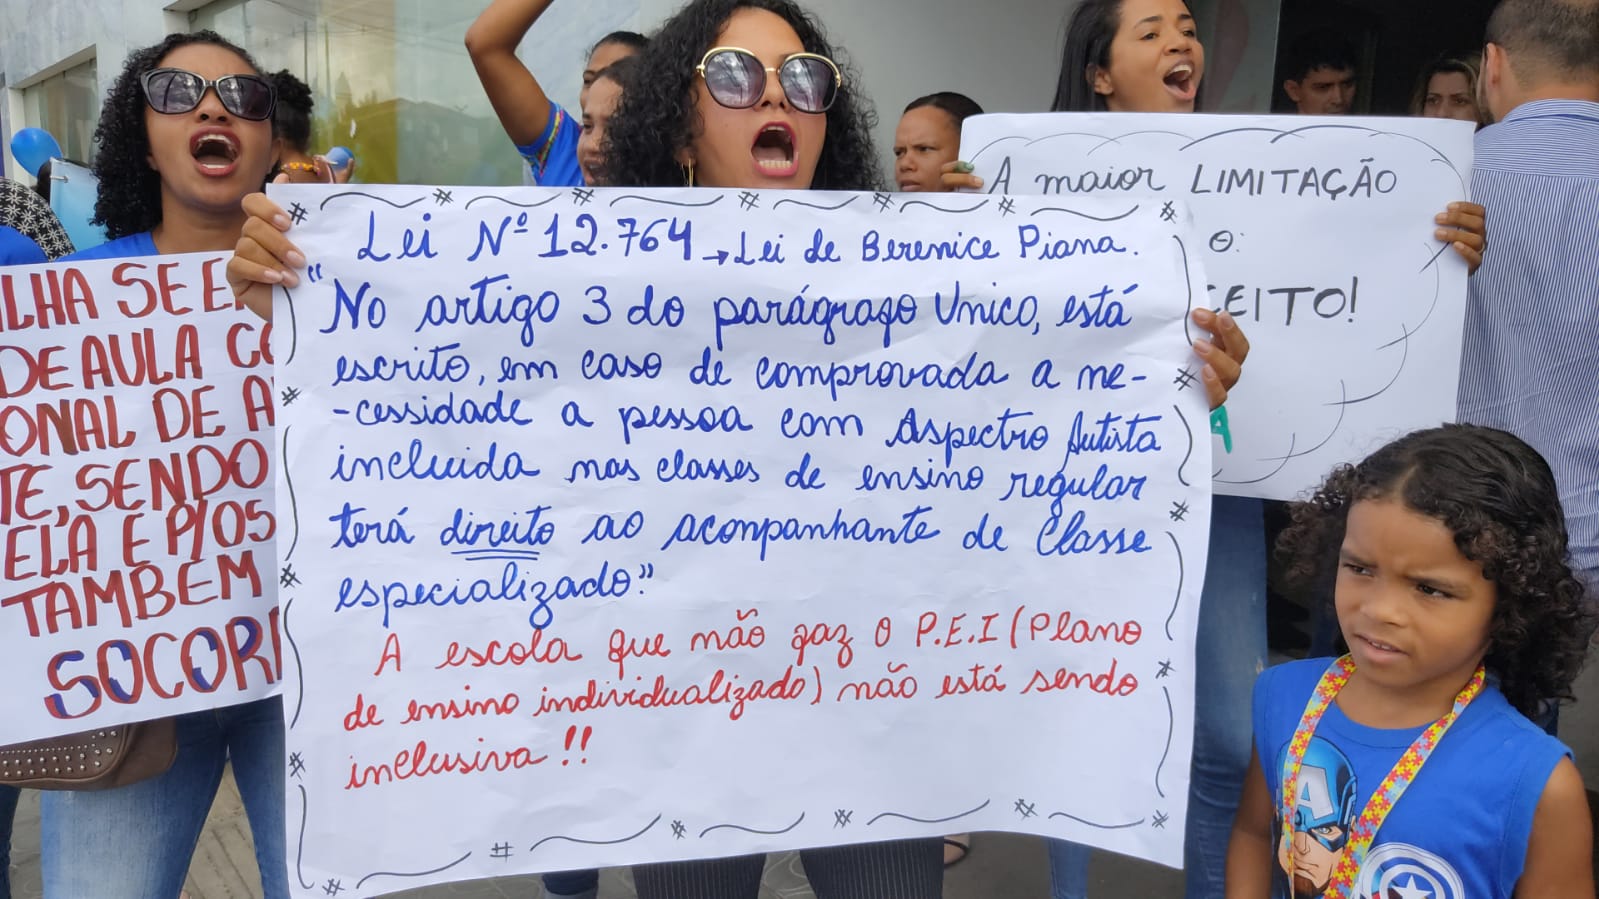 Lei Nº 12.764 → Lei de Berenice Piana.
"No artigo 3 do parágrafo Único, está
escrito, em caso de comprovada a ne-
-cessidade a pessoa com Aspectro Autista
incluida nas classes de ensino regular
terá direito ao aconpanhante de Classe
especializado."
A escola que não faz o P.E.I (Plano
de ensino individualizado) não está sendo
inclusiva!!
A maior LIMITAÇÃO
É O:
CEITO!
A
LHA SE E
DE AULA CO
ONAL DE A
TE, SENDO
ELA E P/OS
TAMBÉM
SOCOR
A